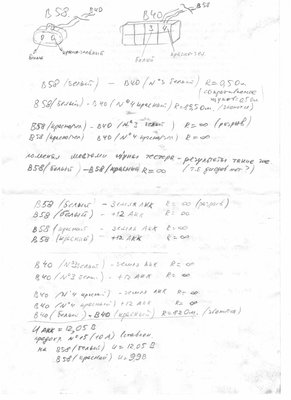 B58
B40
B40
B58
3 4
белый
красно-зелёный
белый
B58 /белый/ - B40 /N°3 белый/ R=0,5 Ом
B58 /белый/ - B40 /N°4 красный/
B58 /красный/ - B40 /N°3 белый/ R=∞ (разрыв)
B58 /красный/ - B40 /N°4 красный/ R=∞
поменял местами провода тестера - результаты такие же
B58 (белый) - B58 /красный R=∞
B58 /белый/ - земля АКК R=∞ (разрыв)
B58 /белый/ - +12 АКК R=∞
B58 /красный - земля АКК R=∞
B58 /красный/ - +12 АКК R=∞
B40 /N°3 белый/ - земля АКК R=∞
B40 /N°3 бел./ - +12 АКК R=∞
B40 /N°4 красный/ - земля АКК R=∞
B40 /N°4 красный/ +12 АКК R=∞
B40 /белый/ - B40 /красный/
U АКК = 12,05 В
N°15 (10А)
на B58 /белый/ U = 12,05 В
B58 /красный/